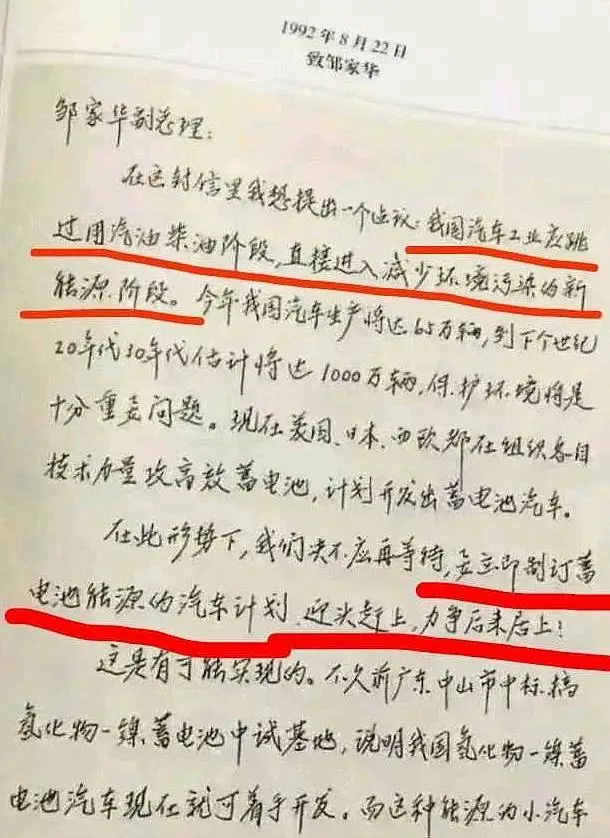 1992年8月22日
致邹家华
邹家华副总理：
在这封信里我想提出一个建议：我国汽车工业应跳
过用汽油柴油阶段，直接进入减少环境污染的新
能源阶段。今年我国汽车生产将达65万辆，到下个世纪
20年代30年代估计将达1000万辆，保护环境将是
十分重要问题。现在美国、日本、西欧都在组织各自
技术力量攻高效蓄电池，计划开发出蓄电池汽车。
在此形势下，我们决不应再等待，要立即制订蓄
电池能源的汽车计划，迎头赶上，力争后来居上！
这是有可能实现的。不久前广东中山市中标搞
氢化物—镍蓄电池中试基地，说明我国氢化物—镍蓄
电池汽车现在就可着手开发。而这种能源的小汽车